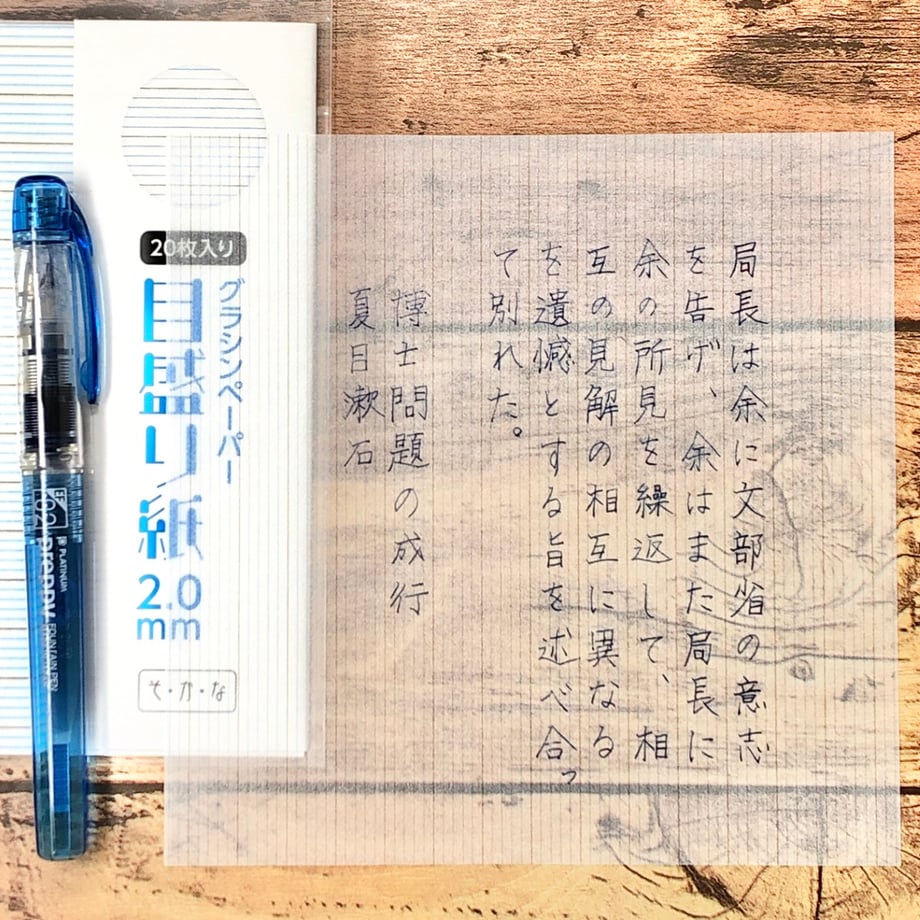 局長は余に文部省の意志
を告げ、余はまた局長に
余の所見を繰返して、相
互の見解の相互に異なる
を遺憾とする旨を述べ合っ
て別れた。
博士問題の成行
夏目漱石
20枚入り
グラシンペーパー
目盛り紙
2.0
mm
そ・か・な
PLATINUM
Preppy
FOUNTAIN PEN
EF
02